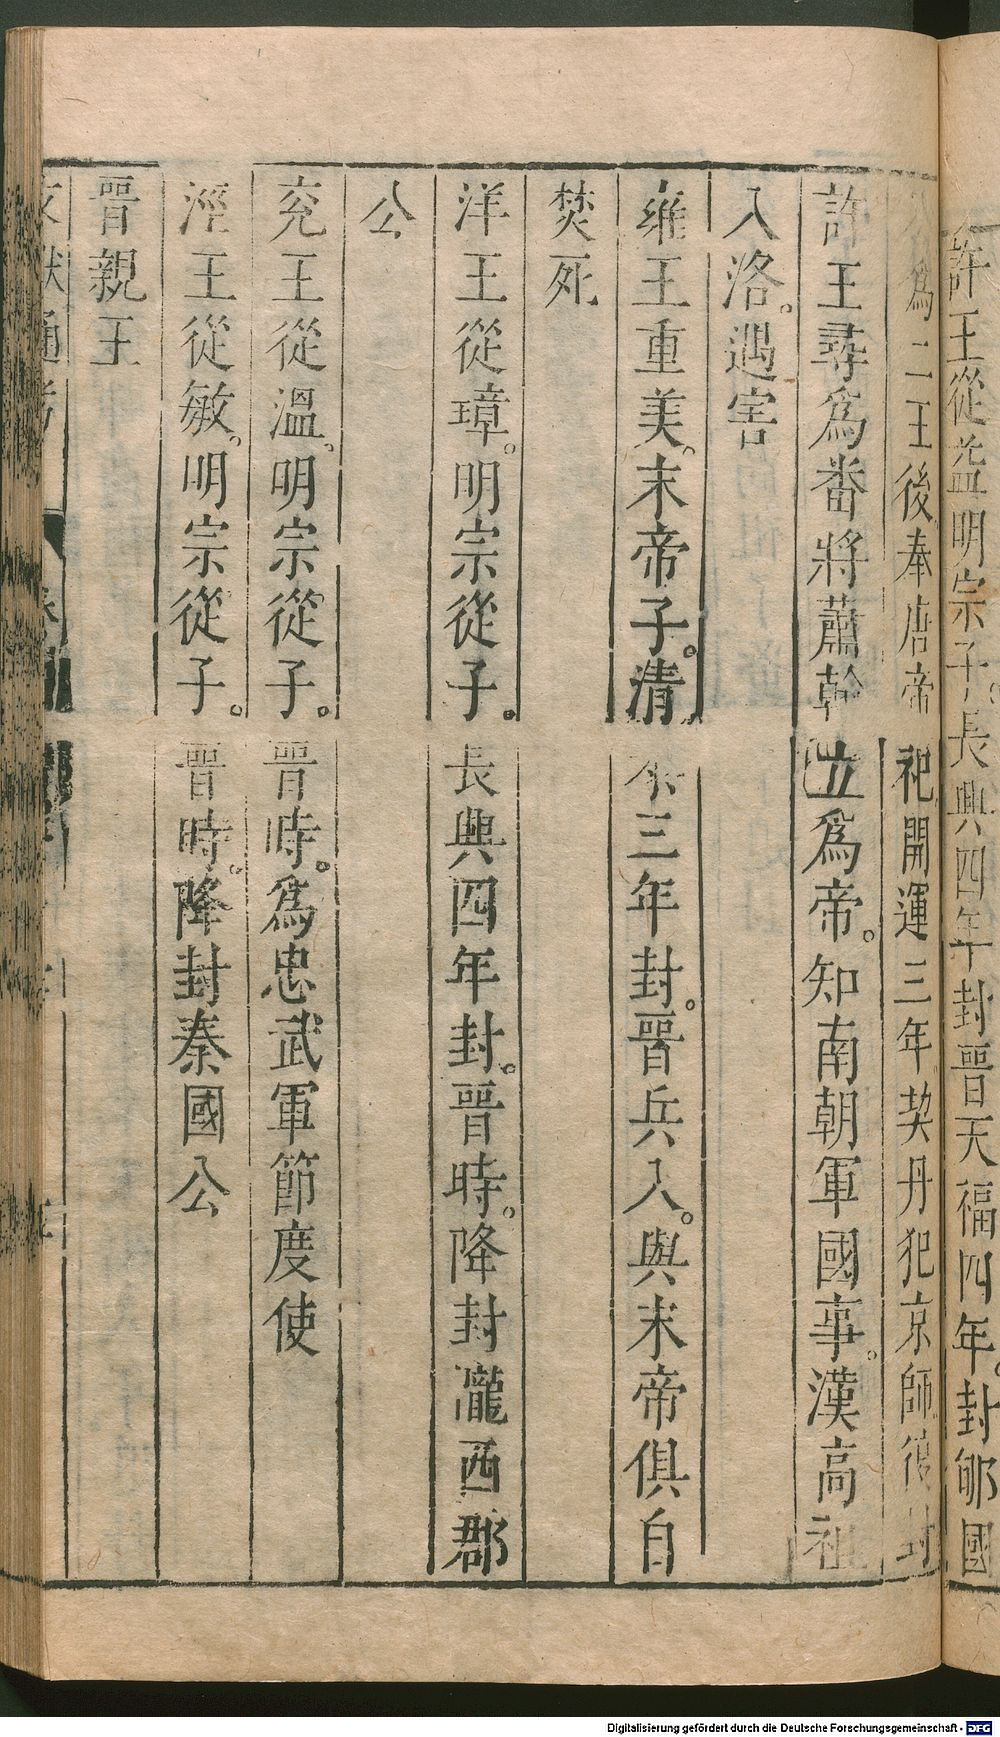 許王從益明宗子長興四年封晉天福四年封郇國
爲二王後奉唐帝祀開運三年契丹犯京師復封
許王尋爲番將蕭幹立爲帝。知南朝軍國事。漢高祖
入洛。遇害
雍王重美。末帝子。清三年封。晉兵入。與末帝俱自
焚死
洋王從璋。明宗從子。長興四年封。晉時。降封瀧西郡
公
兖王從溫。明宗從子。晉時。爲忠武軍節度使
涇王從敏。明宗從子。晉時。降封秦國公
晉親王
文獻通考
Digitalisierung gefördert durch die Deutsche Forschungsgemeinschaft - DFG